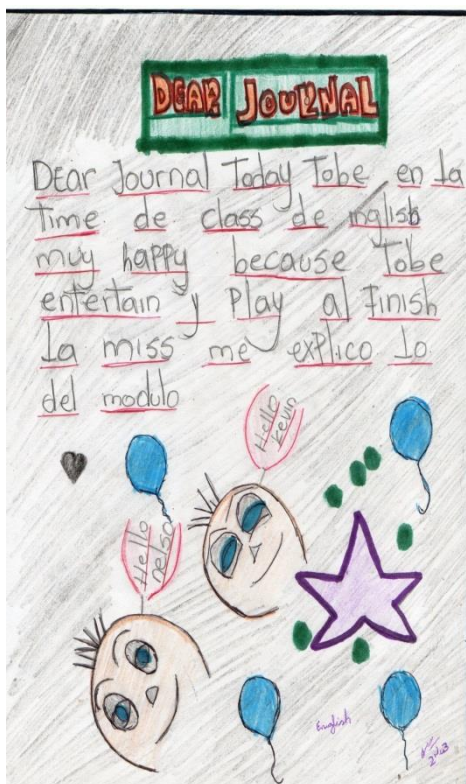 DEAR JOURNAL
DEar Journal Today Tobe en la
Time de class de inglish
muy happy because Tobe
entertain y Play al Finish
La miss me explico Lo
del modulo
Hello
Kevin
Hello
nelson
English